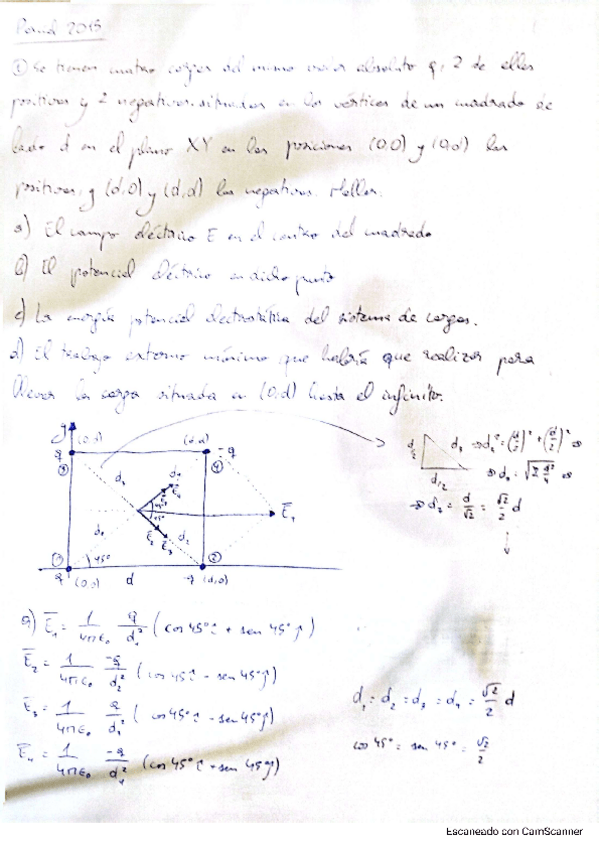 Parcial 2015
① Se tienen cuatro cargas del mismo valor absoluto q, 2 de ellas
positivas y 2 negativas situadas en los vértices de un cuadrado de
lado d en el plano XY en las posiciones (0,0) y (0,d) las
positivas, y (d,0) y (d,d) las negativas. Hallar:
a) El campo eléctrico E en el centro del cuadrado
b) El potencial eléctrico en dicho punto
c) La energía potencial electrostática del sistema de cargas.
d) El trabajo externo mínimo que habría que realizar para
llevar la carga situada en (0,d) hasta el infinito.
y (0,d) (d,d)
q -q
③ ④
d₃ d₄
d/2 d₃ ⇒ d₃² = (d/2)² + (d/2)² ⇒
d/2 ⇒ d₃ = √(2 d²/4) ⇒
⇒ d₃ = d/√2 = √2/2 d
E₂ E₃ d₂
d₁ 45°
① ②
q (0,0) d -q (d,0)
a) E₁ = 1/4πε₀ q/d₁² (cos 45° i + sen 45° j)
E₂ = 1/4πε₀ -q/d₂² (cos 45 i - sen 45° j)
E₃ = 1/4πε₀ q/d₃² (cos 45° i - sen 45° j)
E₄ = 1/4πε₀ -q/d₄² (cos 45° i + sen 45 j)
d₁ = d₂ = d₃ = d₄ = √2/2 d
cos 45° = sen 45° = √2/2
Escaneado con CamScanner